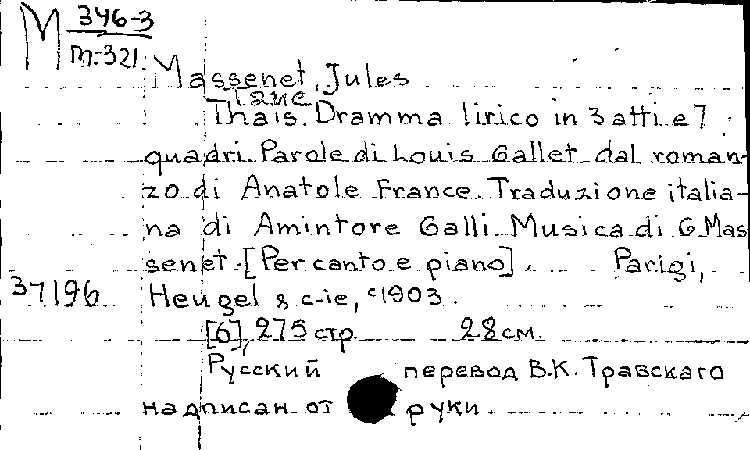 М 346-3
m-321
Massenet, Jules
Таис
Thais. Dramma lirico in 3 atti e 7
quadri. Parole di Louis Gallet dal roman-
zo di Anatole France. Traduzione italia-
na di Amintore Galli. Musica di G. Mas
senet. [Per canto e piano]. Parigi,
37196 Heugel & c-ie, c1903.
[6], 275 стр 28 см.
Русский перевод В.К. Травскаго
надписан от руки.